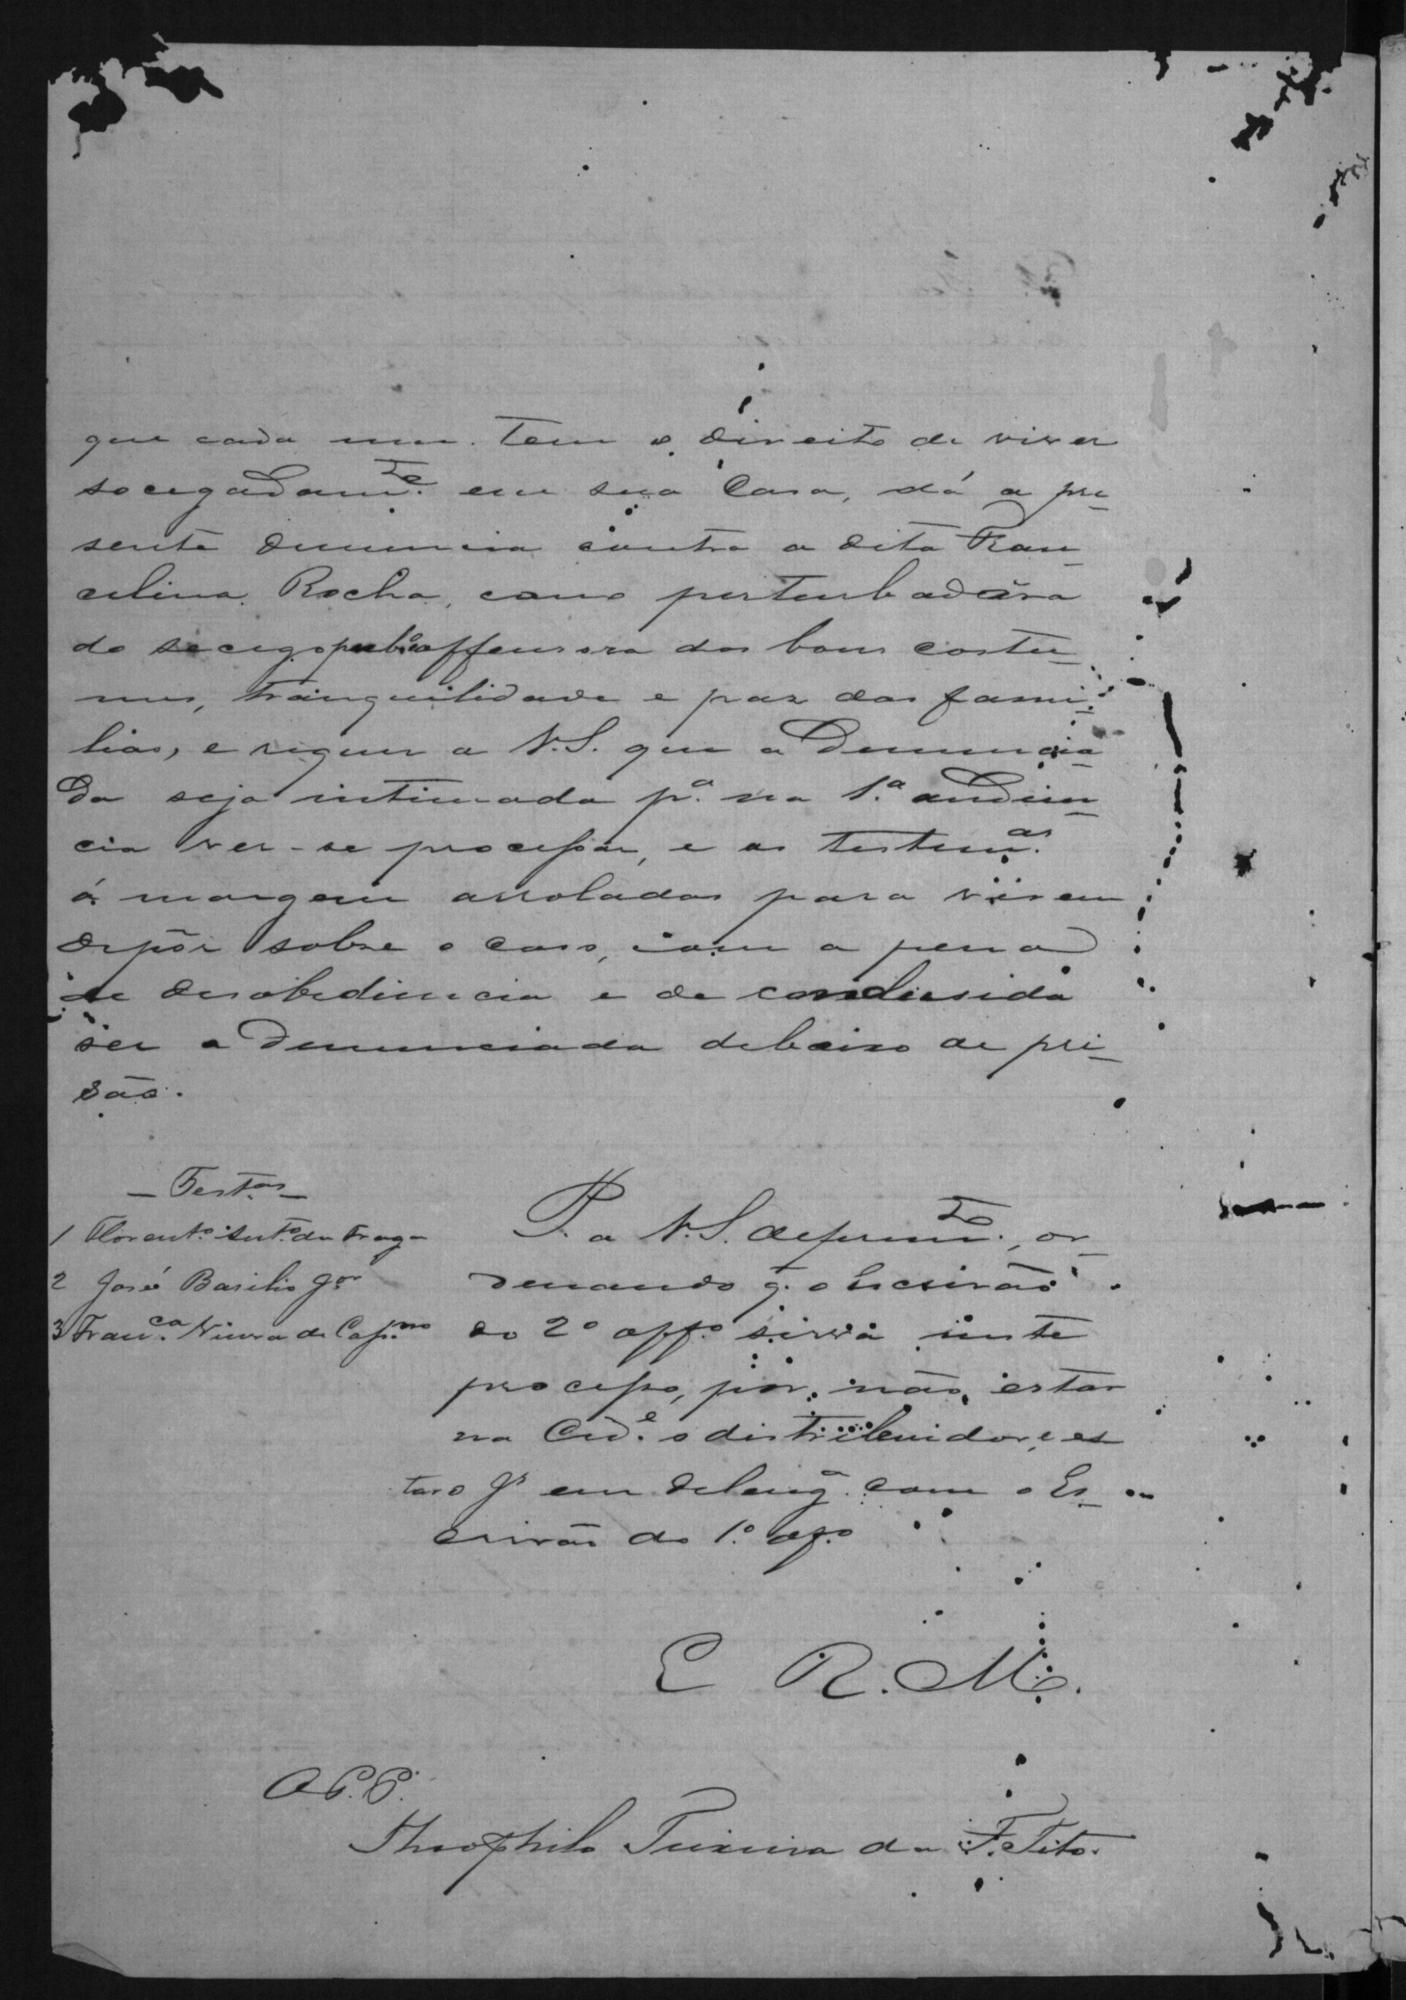 que cada um tem o direito de viver
socegadam.te em sua Casa, dá a pre-
sente denuncia contra a dita Fran-
celina Rocha, como perturbadôra
do socego pub.o offensora dos bons costu-
mes, tranquilidade e paz das fami-
lias, e requer a V.S. que a Denuncia-
da seja intimada p.a na 1.a audien-
cia ver-se processar, e as testem.as
á margem arroladas para virem
depôr sobre o caso, com a pena
de desobediencia e de condusida
ser a Denunciada debaixo de pri-
são.
— Test.as —
1 Florent.o
2 José Basilio J.or
3 Fran.ca Vieira de
P. a V.S. deferim.to, or-
denando q. o Escrivão
do 2o off.o sirva neste
processo, por não estar
na Cid.e o distribuidor, e es
tar o em deleng.a com o Es-
crivão do 1.o of.o
E R. M.
O P. P.
Theophilo Teixeira da F. Tito.